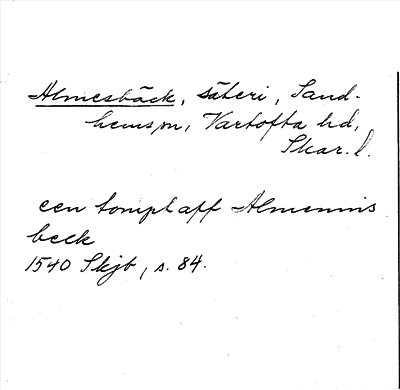 Almesbäck, säteri, Sand-
hemssn, Vartofta hd,
Skar. l.
een tompt aff Almennis
beck
1540 Skjb, s. 84.